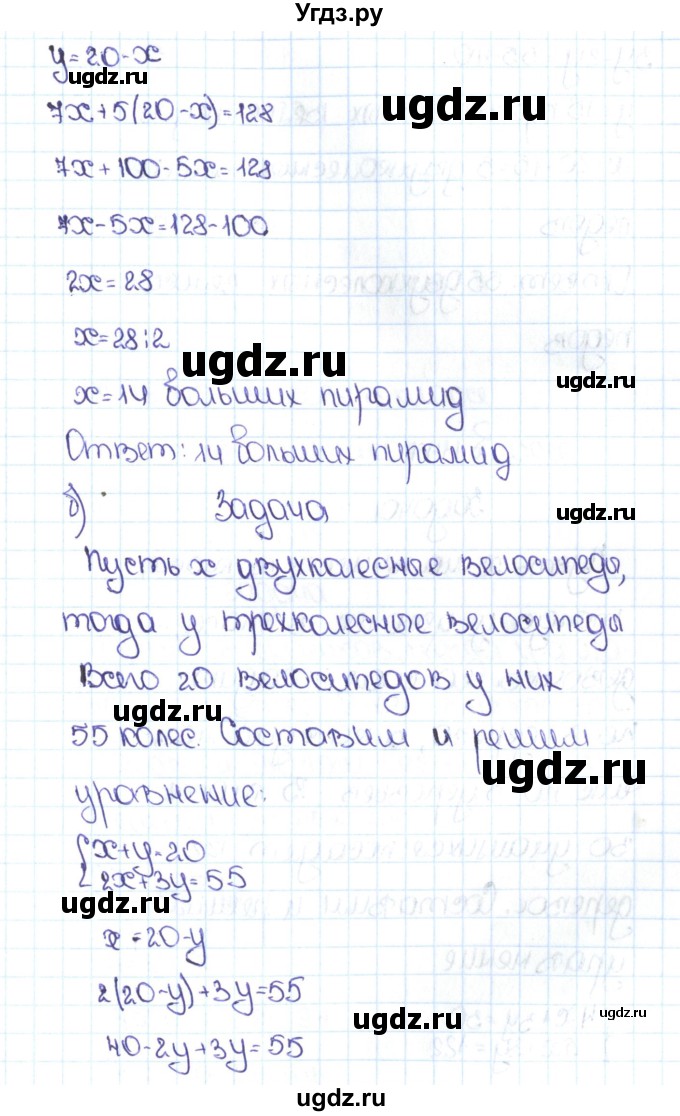 Угдз.ру
y=20-x
ugdz.ru
ugdz.ru
7x+5(20-x)=128
7x+100-5x=128
ugdz.ru
7x-5x=128-100
2x=28
x=28:2
ugdz.ru
ugdz.ru
x=14 больших пирамид
Ответ: 14 больших пирамид
б) Задача
ugdz.ru
Пусть x двухколесные велосипеды,
тогда y трехколесные велосипеды
Всего 20 велосипедов у них
ugdz.ru
55 колес. Составим и решим
ugdz.ru
уравнение:
{x+y=20
2x+3y=55
ugdz.ru
x=20-y
2(20-y)+3y=55
ugdz.ru
ugdz.ru
40-2y+3y=55
ugdz.ru